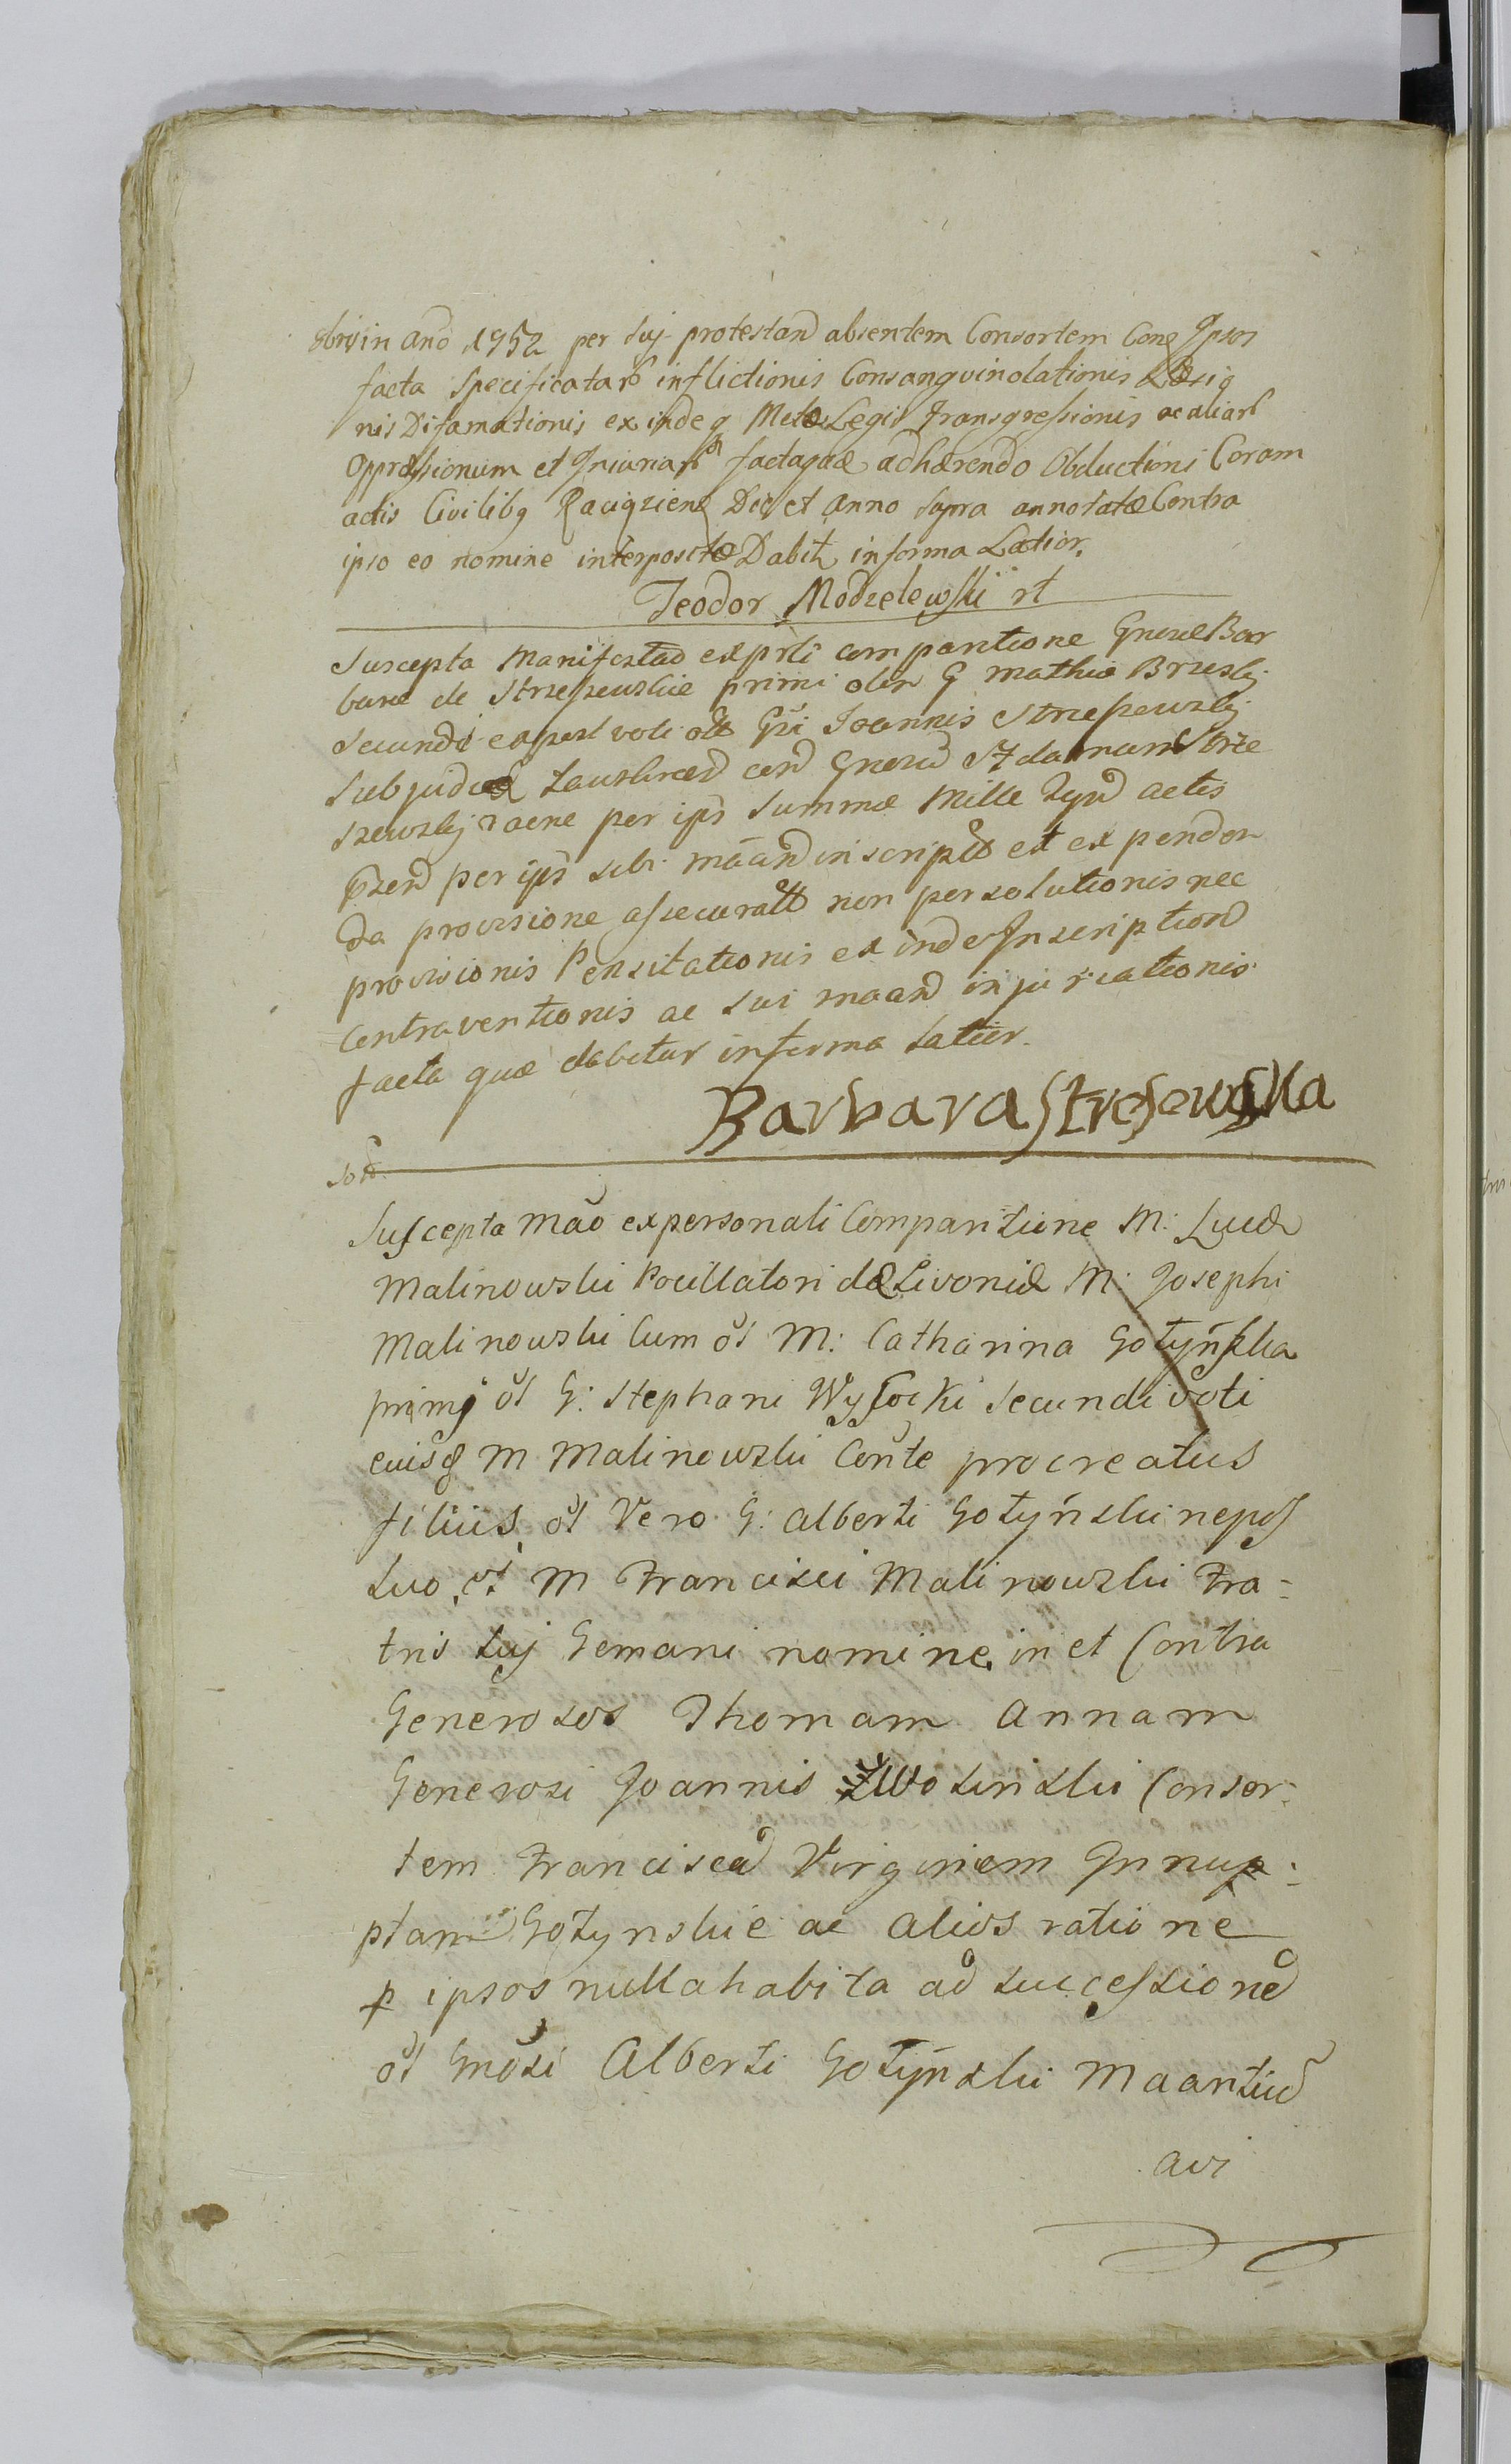 in Ano 1752 per suj protestan absentem Consortem Con Ipsos
facta Specificatar inflictionis Consangvinolationis Læsio
nis Difamationis exinde q Metæ Legis Transgressionis ac aliar
Oppressionum et Injuriar factaquæ adhærendo Obductioni Coram
actis Civilibq Raciąziens Die et Anno supra annotatæ Contra
ipso eo nomine interpositæ Dabit in forma Latior.
Teodor Modzelewski
Suscepta Manifestao ex prli comparitione Gnosæ Bar
baræ de primi olim G Mathiæ Brzesky
secundi voti Joannis
cum Gnosum Adamum Strze
szewsky racne per ips summæ Mille
per ips sibi in et expenden
da provisione assecurat non persolutionis nec
provisionis Pensitationis exinde Inscription
Contraventionis ac sui maan injuricationis
facta quæ dabitur in forma latior.
Barbara Stresewska
Suscepta Mão ex personali Comparitione M: Lucæ
Malinowski Pocillatoridæ Livoniæ M: Josephi
Malinowski cum ol M: Catharina Gołyńska
primj ol G: Stephani Wysocki secundi voti
eiusq M Malinowski Conte procreatus
filius, ol Vero G: Alberti Gołyński nepos
suo, et M Francisci Malinowski Fra=
tris suj Gemani nomine, in et Contra
Generosos Thomam Annam
Generosi Joannis Conser=
tem Franciscam Virginem Innup=
ptam Gołynskie ac alios ratione
p ipsos nulla habita ad successione
ol Gnosi Alberti Gołyński Maantiu
avi